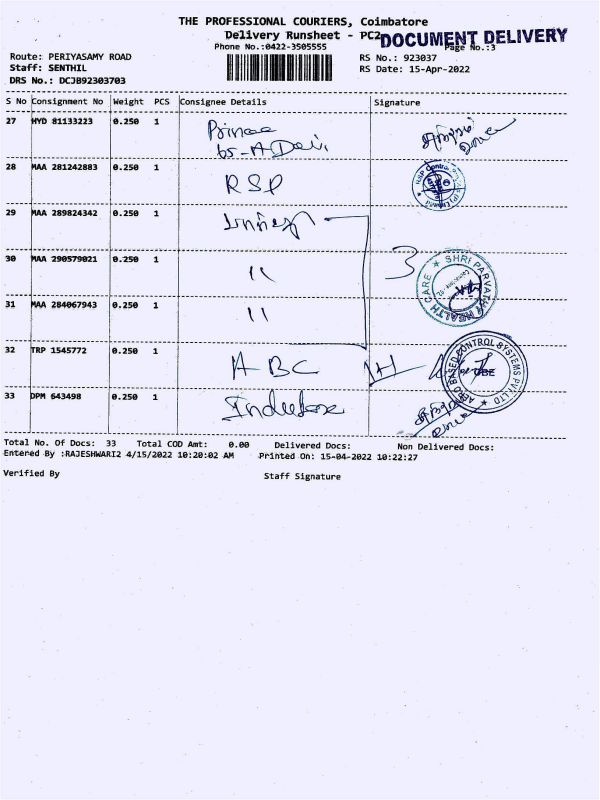 THE PROFESSIONAL COURIERS, Coimbatore
Delivery Runsheet - PC2
DOCUMENT DELIVERY
Phone No.:0422-3505555
Page No.:3
Route: PERIYASAMY ROAD
RS No.: 923037
Staff: SENTHIL
RS Date: 15-Apr-2022
DRS No.: DCJB92303703
S No Consignment No Weight PCS Consignee Details Signature
27 HYD 81133223 0.250 1
28 MAA 281242883 0.250 1 RSP
29 MAA 289824342 0.250 1
30 MAA 290579021 0.250 1 " 3
SHRI PARVATHI HEALTH CARE
31 MAA 284067943 0.250 1 "
32 TRP 1545772 0.250 1 ABC
CONTROL SYSTEMS PVT LTD
33 DPM 643498 0.250 1
Total No. Of Docs: 33 Total COD Amt: 0.00 Delivered Docs: Non Delivered Docs:
Entered By :RAJESHWARI2 4/15/2022 10:20:02 AM Printed On: 15-04-2022 10:22:27
Verified By Staff Signature